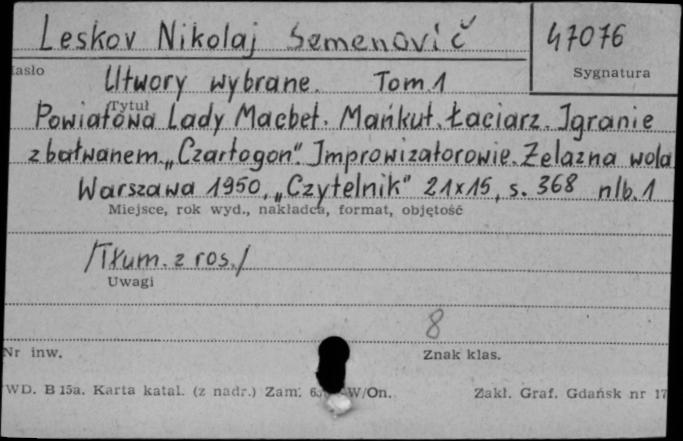 Leskov Nikolaj Semenovič 47076
asło Sygnatura
Utwory wybrane. Tom 1
Tytuł
Powiatowa Lady Macbet. Mańkut. Łaciarz. Igranie
z bałwanem. „Czartogon". Improwizatorowie. Żelazna wola
Warszawa 1950, „Czytelnik" 21x15, s. 368 nlb. 1
Miejsce, rok wyd., nakładca, format, objętość
/Tłum. z ros./
Uwagi
8
Nr inw. Znak klas.
WD. B 15a. Karta katal. (z nadr.) Zam. W/On. Zakł. Graf. Gdańsk nr 17